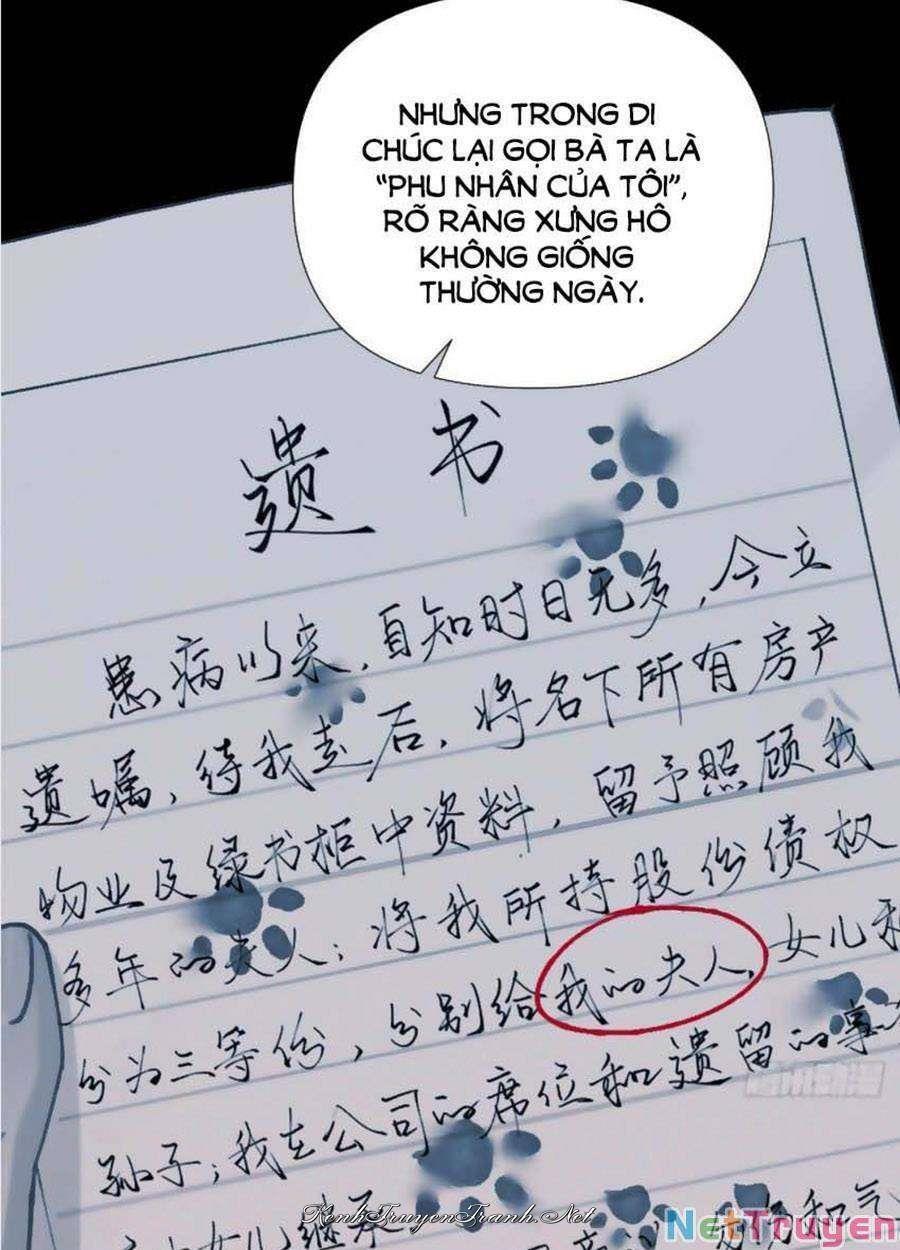 NHƯNG TRONG DI
CHÚC LẠI GỌI BÀ TA LÀ
“PHU NHÂN CỦA TÔI”,
RÕ RÀNG XƯNG HÔ
KHÔNG GIỐNG
THƯỜNG NGÀY.
遗书
患病以来,自知时日无多,今立
遗嘱,待我走后,将名下所有房产
物业及绿书柜中资料,留予照顾我
多年的夫人;将我所持股份债权
分为三等份,分别给我的夫人、女儿和
孙子;我在公司的席位和遗留的事
女儿继承
和气
KenhTruyenTranh.Net
NetTruyen